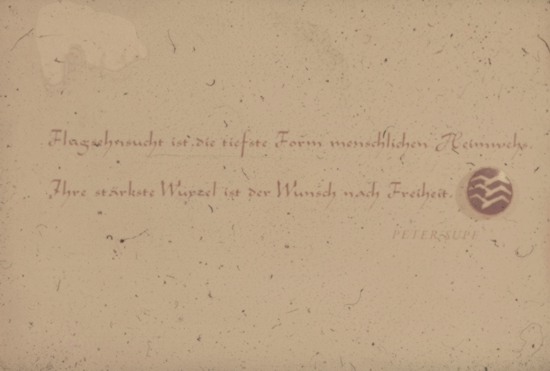 Flugsehnsucht ist die tiefste Form menschlichen Heimwehs.
Ihre stärkste Wurzel ist der Wunsch nach Freiheit.
PETER SUPF